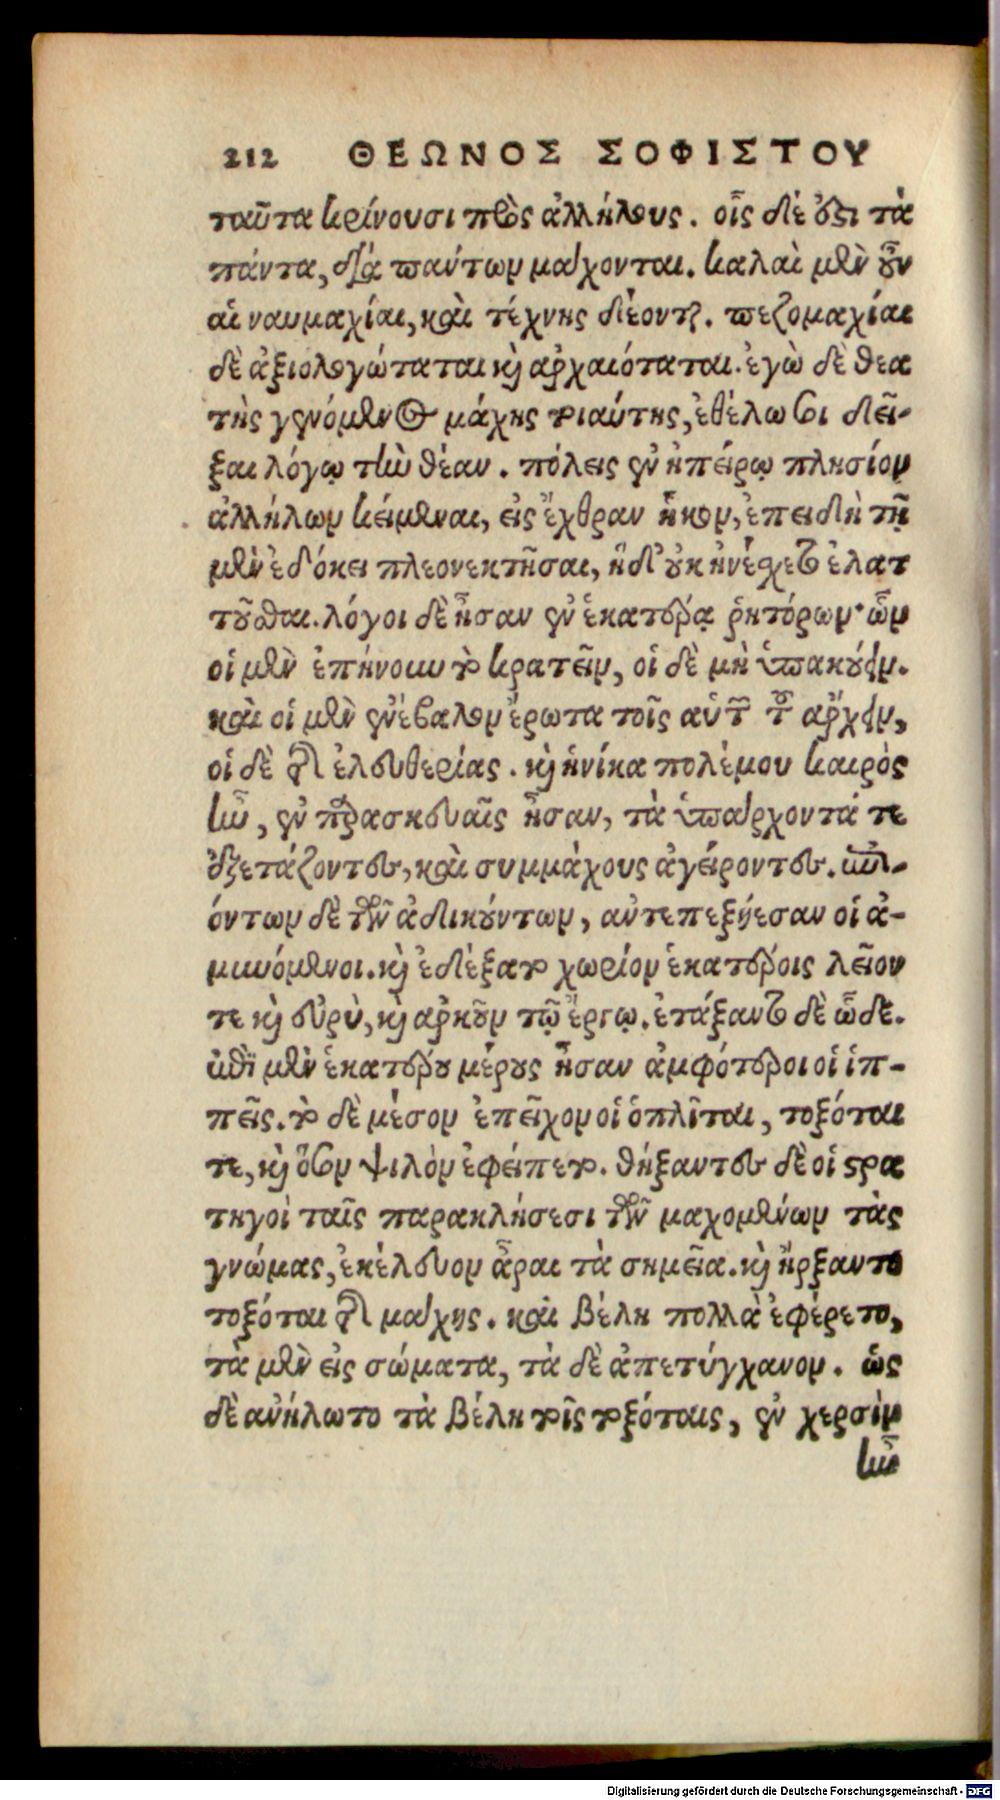 212 ΘΕΩΝΟΣ ΣΟΦΙΣΤΟΥ
ταῦτα κρίνουσι πρὸς ἀλλήλους. οἷς δέ ὅτι τὰ
πάντα, διὰ πάντων μάχονται. καλαὶ μὲν οὖν
αἱ ναυμαχίαι, καὶ τέχνης δέονται. πεζομαχίαι
δὲ ἀξιολογώταται καὶ ἀρχαιόταται. ἐγὼ δὲ θεα
τὴς γενόμενος μάχης τοιαύτης, ἐθέλω σοι δεῖ-
ξαι λόγῳ τὴν θέαν. πόλεις ἐν ἠπείρῳ πλησίον
ἀλλήλων κείμεναι, εἰς ἔχθραν ἧκον, ἐπειδὴ τῇ
μὲν ἐδόκει πλεονεκτῆσαι, ἡ δ' οὐκ ἠνέσχετο ἐλατ
τοῦσθαι. λόγοι δὲ ἦσαν ἐν ἑκατέρᾳ ῥητόρων· ὧν
οἱ μὲν ἐπήνουν τὸ κρατεῖν, οἱ δὲ μὴ ὑπακούειν.
καὶ οἱ μὲν ἐνέβαλον ἔρωτα τοῖς αὑτῶν τοῦ ἄρχειν,
οἱ δὲ τῆς ἐλευθερίας. καὶ ἡνίκα πολέμου καιρὸς
ἦν, ἐν παρασκευαῖς ἦσαν, τὰ ὑπάρχοντά τε
ἐξετάζοντες, καὶ συμμάχους ἀγείροντες. ἐπι-
όντων δὲ τῶν ἀδικούντων, ἀντεπεξῄεσαν οἱ ἀ-
μυνόμενοι. καὶ ἐδέξατο χωρίον ἑκατέροις λεῖον
τε καὶ εὐρὺ, καὶ ἀρκοῦν τῷ ἔργῳ. ἐτάξαντο δὲ ὧδε.
ἐπὶ μὲν ἑκατέρου μέρους ἦσαν ἀμφότεροι οἱ ἱπ-
πεῖς. τὸ δὲ μέσον ἐπεῖχον οἱ ὁπλῖται, τοξόται
τε, καὶ ὅσον ψιλὸν ἐφείπετο. θήξαντες δὲ οἱ στρα
τηγοὶ ταῖς παρακλήσεσι τῶν μαχομένων τὰς
γνώμας, ἐκέλευον ἆραι τὰ σημεῖα. καὶ ἤρξαντο
τοξόται τῆς μάχης. καὶ βέλη πολλὰ ἐφέρετο,
τὰ μὲν εἰς σώματα, τὰ δὲ ἀπετύγχανον. ὡς
δὲ ἀνήλωτο τὰ βέλη τοῖς τοξόταις, ἐν χερσὶν
ἦν
Digitalisierung gefördert durch die Deutsche Forschungsgemeinschaft - DFG